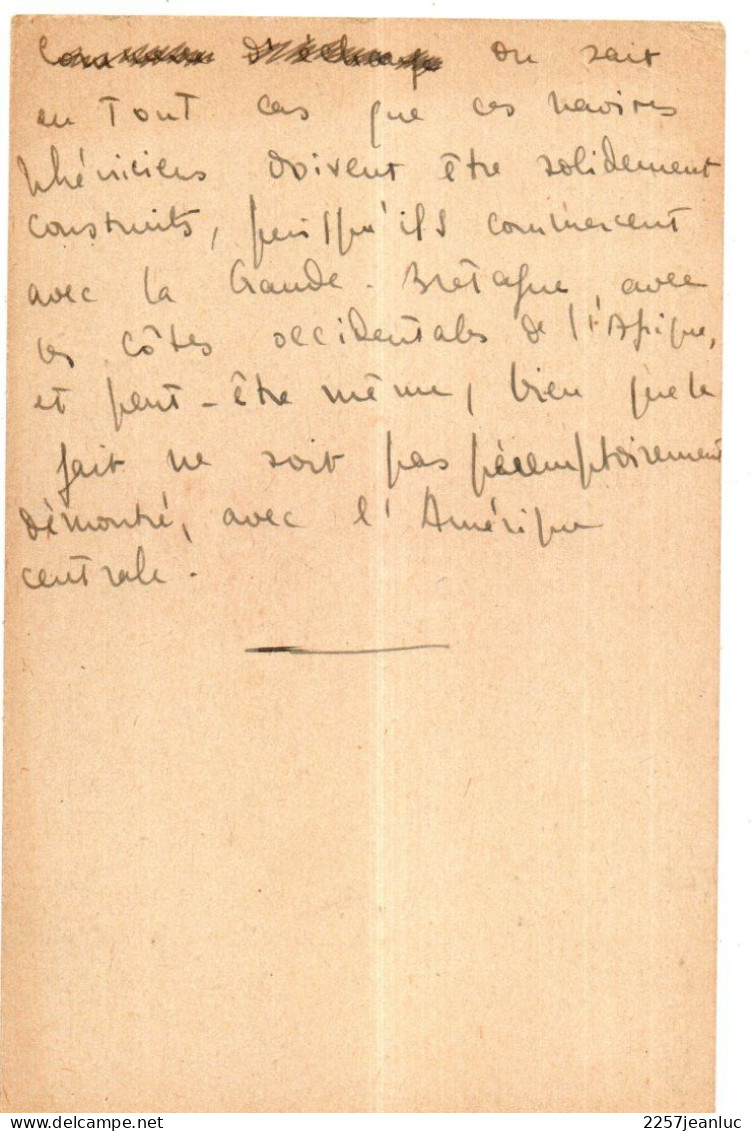 on sait
en Tout cas que ces navires
phéniciens doivent être solidement
construits, puisqu'ils commercent
avec la Grande-Bretagne, avec
les côtes occidentales de l'Afrique,
et peut-être même, bien que le
fait ne soit pas péremptoirement
démontré, avec l'Amérique
centrale.
2257jeanluc